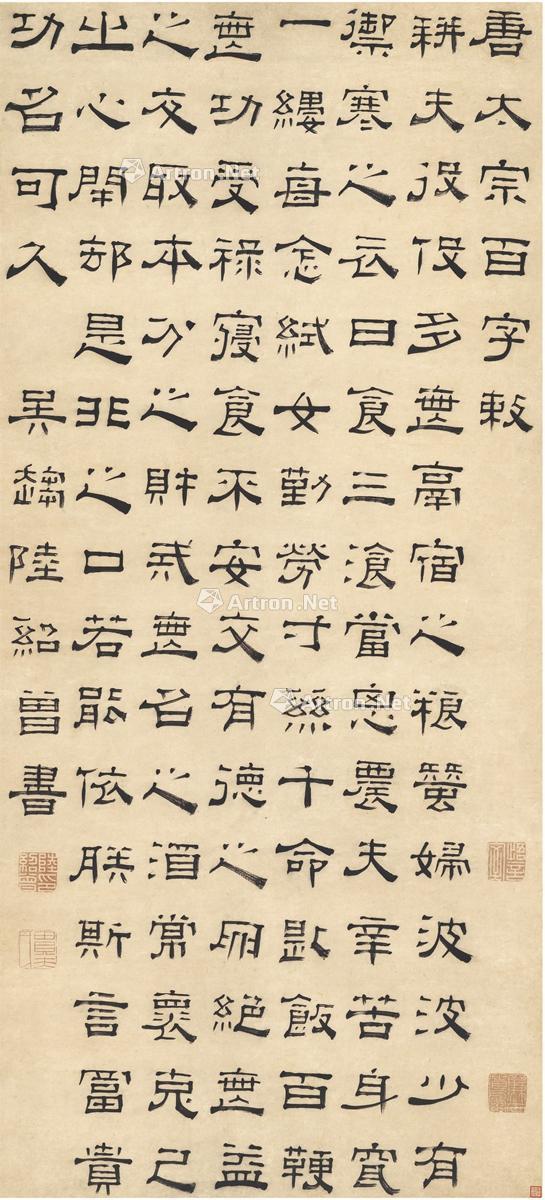 唐太宗百字敕
耕夫役役多無鬲宿之粮蠶婦波波少有
禦寒之衣日食三湌當思農夫辛苦身穿
一縷每念織女勤勞寸絲千命匙飯百鞭
無功受祿寢食不安交有德之朋絕無益
之友取本分之財戒無名之酒常懷克己
之心閉却是非之口若能依朕斯言富貴
功名可久 吳趨陸紹曾書
Artron.Net
Artron.Net
Artron.Net